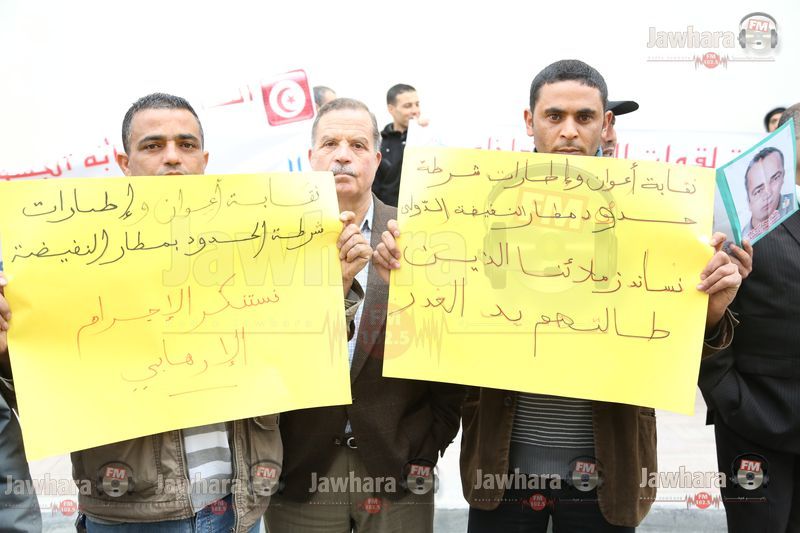 نقابة أعوان و إطارات
شرطة الحدود بمطار النفيضة
نستنكر الإجرام
الإرهابي
نقابة أعوان وإطارات شرطة
حدود مطار النفيضة الدولي
نساند زملائنا الذين
طالتهم يد الغدر
Jawhara FM
Jawhara FM
102.5
Jawhara FM
Jawhara FM
Jawhara FM
Jawhara FM